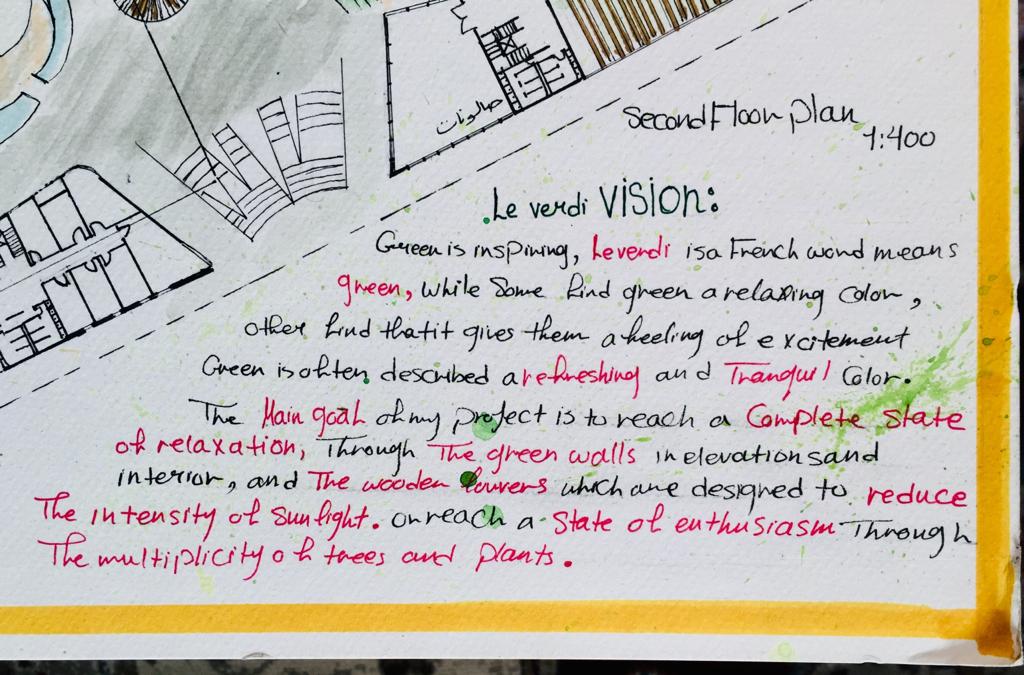 صالونات
Second Floor plan
1:400
Le verdi VISION:
Green is inspining, Le verdi is a French word means
green, while Some find green a relaxing Color,
other find that it gives them a feeling of excitement
Green is often described a refreshing and Tranquil Color.
The Main goal of my project is to reach a Complete State
of relaxation, Through The green walls in elevations and
interior, and The wooden louvers which are designed to reduce
The intensity of Sunlight. or reach a State of enthusiasm Through
The multiplicity of trees and plants.